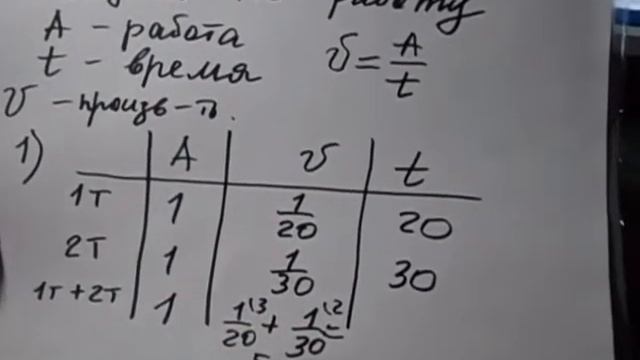 работу
A - работа
t - время
v = A/t
v - произв-ть.
1) A v t
1т 1 1/20 20
2т 1 1/30 30
1т + 2т 1 1/20 (3 + 1/30 (2 =